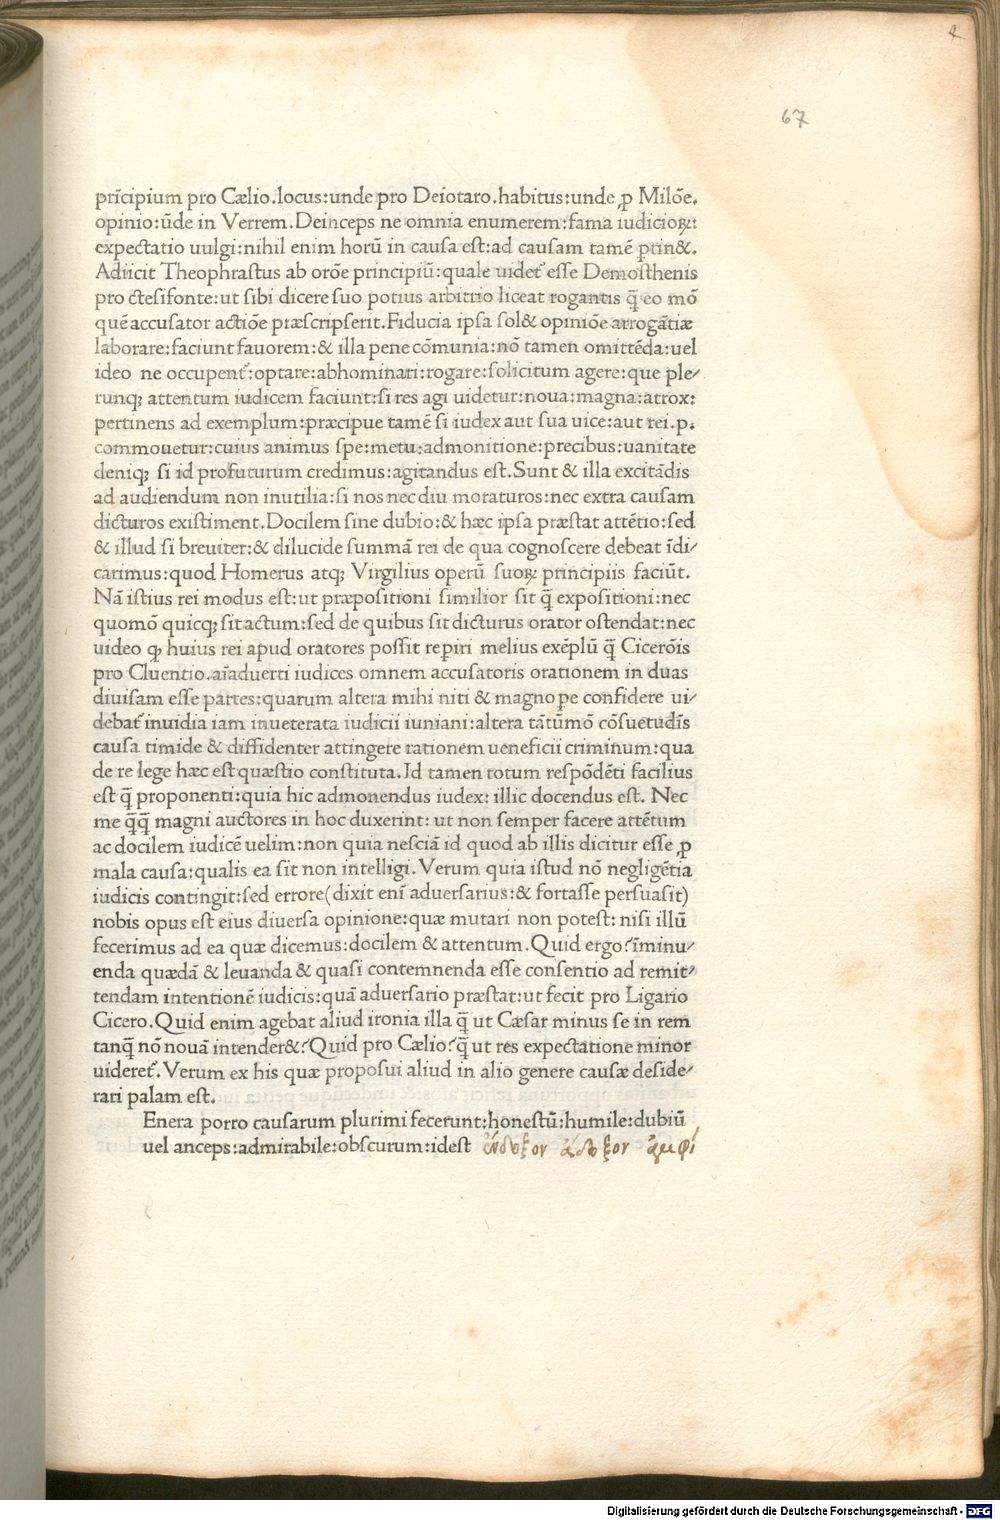 67
prīcipium pro Cælio.locus:unde pro Deiotaro.habitus:unde ꝓ Milōe.
opinio:ūde in Verrem.Deinceps ne omnia enumerem:fama iudicioꝝ:
expectatio uulgi:nihil enim horū in causa est:ad causam tamē ꝑtin&.
Adiicit Theophrastus ab orōe principiū:quale uidet᷑ esse Demosthenis
pro ctesifonte:ut sibi dicere suo potius arbitrio liceat rogantis q̄ eo mō
quē accusator actiōe præscripserit.Fiducia ipsa sol& opiniōe arrogātiæ
laborare:faciunt fauorem:& illa pene cōmunia:nō tamen omittēda:uel
ideo ne occupent᷑:optare:abhominari:rogare:solicitum agere:que ple/
runqꝫ attentum iudicem faciunt:si res agi uidetur:noua:magna:atrox:
pertinens ad exemplum:præcipue tamē si iudex aut sua uice:aut rei.p.
commouetur:cuius animus spe:metu:admonitione:precibus:uanitate
deniqꝫ si id profuturum credimus:agitandus est.Sunt & illa excitādis
ad audiendum non inutilia:si nos nec diu moraturos:nec extra causam
dicturos existiment.Docilem sine dubio:& hæc ipsa præstat attētio:sed
& illud si breuiter:& dilucide summā rei de qua cognoscere debeat īdi/
carimus:quod Homerus atqꝫ Virgilius operū suoꝝ principiis faciūt.
Nā istius rei modus est:ut præpositioni similior sit q̄ expositioni:nec
quomō quicqꝫ sit actum:sed de quibus sit dicturus orator ostendat:nec
uideo ꝙ huius rei apud oratores possit reꝑiri melius exēplū q̄ Cicerōis
pro Cluentio.aīaduerti iudices omnem accusatoris orationem in duas
diuisam esse partes:quarum altera mihi niti & magnoꝑe confidere ui/
debat᷑ inuidia iam inueterata iudicii iuniani:altera tātūmō cōsuetudīs
causa timide & diffidenter attingere rationem ueneficii criminum:qua
de re lege hæc est quæstio constituta.Id tamen totum respōdēti facilius
est q̄ proponenti:quia hic admonendus iudex:illic docendus est. Nec
me q̄q̄ magni auctores in hoc duxerint: ut non semper facere attētum
ac docilem iudicē uelim:non quia nesciā id quod ab illis dicitur esse ꝓ
mala causa:qualis ea sit non intelligi.Verum quia istud nō negligētia
iudicis contingit:sed errore(dixit enī aduersarius:& fortasse persuasit)
nobis opus est eius diuersa opinione:quæ mutari non potest: nisi illū
fecerimus ad ea quæ dicemus:docilem & attentum.Quid ergo?īminu/
enda quædā & leuanda & quasi contemnenda esse consentio ad remit/
tendam intentionē iudicis:quā aduersario præstat:ut fecit pro Ligario
Cicero.Quid enim agebat aliud ironia illa q̄ ut Cæsar minus se in rem
tanq̄ nō nouā intender&?Quid pro Cælio?q̄ ut res expectatione minor
uideret᷑.Verum ex his quæ proposui aliud in alio genere causæ deside/
rari palam est.
Enera porro causarum plurimi fecerunt:honestū:humile:dubiū
uel anceps:admirabile:obscurum:idest ἔνδοξον ἄδοξον ἀμφί